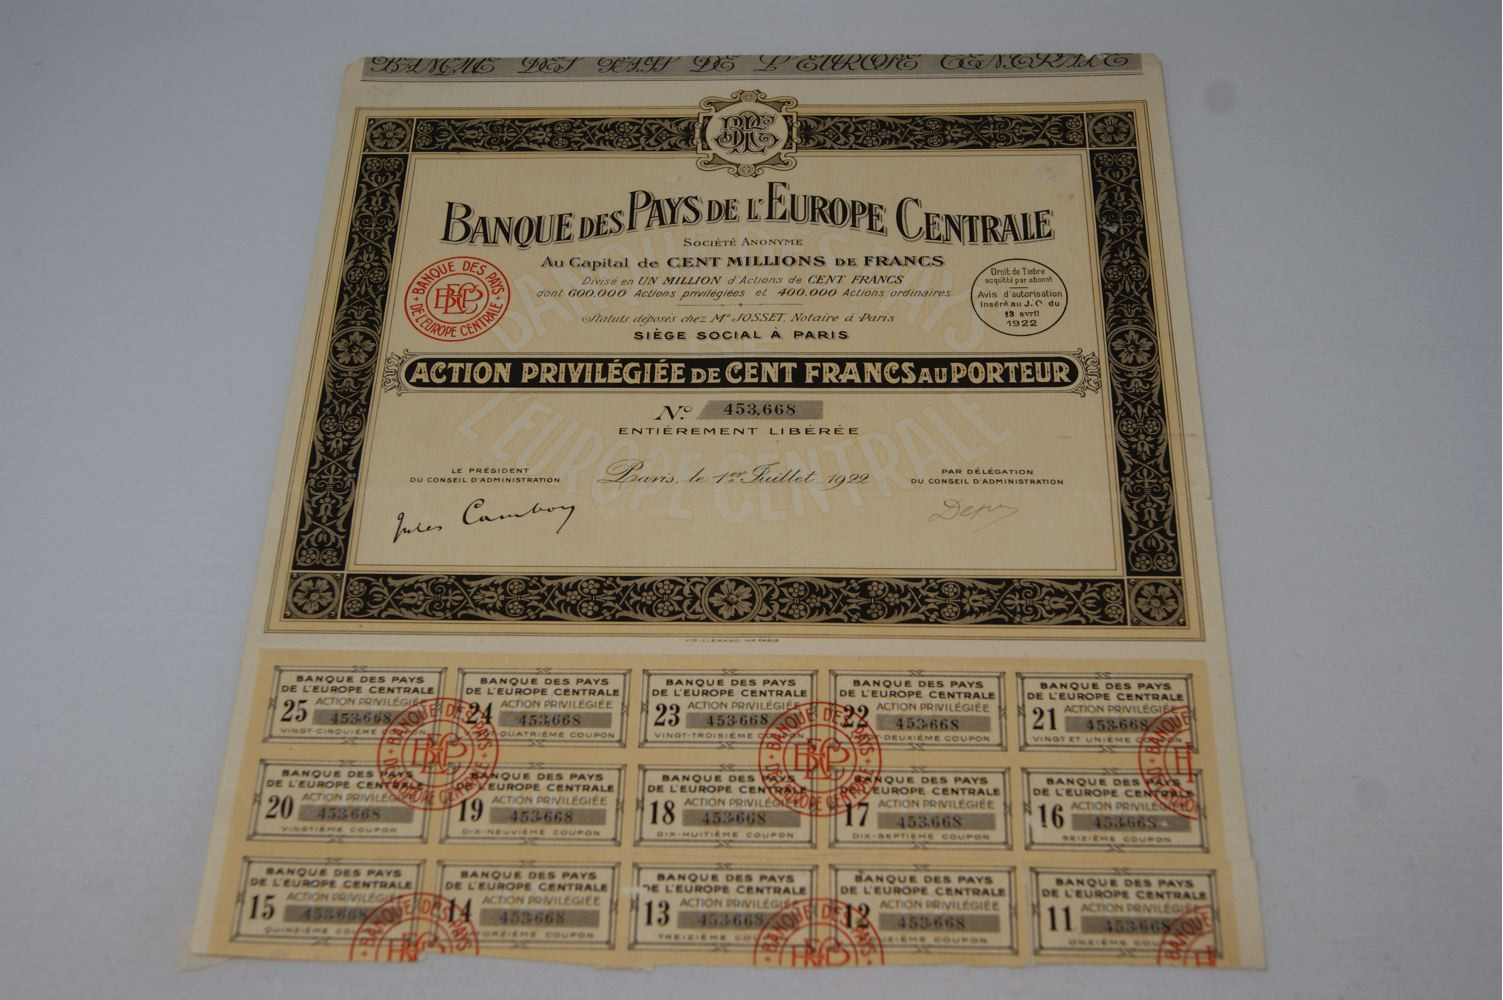 BANQUE DES PAYS DE L'EUROPE CENTRALE
BANQUE DES PAYS DE L'EUROPE CENTRALE
SOCIÉTÉ ANONYME
Au Capital de CENT MILLIONS DE FRANCS
Divisé en UN MILLION d'Actions de CENT FRANCS
dont 600.000 Actions privilégiées et 400.000 Actions ordinaires
Statuts déposés chez Me JOSSET, Notaire à Paris
SIÈGE SOCIAL À PARIS
BANQUE DES PAYS DE L'EUROPE CENTRALE
Droit de Timbre
acquitté par abonnt
Avis d'autorisation
Inséré au J.O. du
13 avril
1922
ACTION PRIVILÉGIÉE DE CENT FRANCS AU PORTEUR
No. 453,668
ENTIÈREMENT LIBÉRÉE
LE PRÉSIDENT
DU CONSEIL D'ADMINISTRATION
Paris, le 1er Juillet 1922
PAR DÉLÉGATION
DU CONSEIL D'ADMINISTRATION
Jules Cambon
BANQUE DES PAYS DE L'EUROPE CENTRALE
VIEILLEMARD, IMP. PARIS
BANQUE DES PAYS
DE L'EUROPE CENTRALE
ACTION PRIVILÉGIÉE
25 453,668
VINGT-CINQUIÈME COUPON
BANQUE DES PAYS
DE L'EUROPE CENTRALE
ACTION PRIVILÉGIÉE
24 453,668
QUATRIÈME COUPON
BANQUE DES PAYS
DE L'EUROPE CENTRALE
ACTION PRIVILÉGIÉE
23 453,668
VINGT-TROISIÈME COUPON
BANQUE DES PAYS
DE L'EUROPE CENTRALE
ACTION PRIVILÉGIÉE
22 453,668
DEUXIÈME COUPON
BANQUE DES PAYS
DE L'EUROPE CENTRALE
ACTION PRIVILÉGIÉE
21 453,668
VINGT ET UNIÈME COUPON
BANQUE DES PAYS
DE L'EUROPE CENTRALE
ACTION PRIVILÉGIÉE
20 453,668
VINGTIÈME COUPON
BANQUE DES PAYS
DE L'EUROPE CENTRALE
ACTION PRIVILÉGIÉE
19 453,668
DIX-NEUVIÈME COUPON
BANQUE DES PAYS
DE L'EUROPE CENTRALE
ACTION PRIVILÉGIÉE
18 453,668
DIX-HUITIÈME COUPON
BANQUE DES PAYS
DE L'EUROPE CENTRALE
ACTION PRIVILÉGIÉE
17 453,668
DIX-SEPTIÈME COUPON
BANQUE DES PAYS
DE L'EUROPE CENTRALE
ACTION PRIVILÉGIÉE
16 453,668
SEIZIÈME COUPON
BANQUE DES PAYS
DE L'EUROPE CENTRALE
ACTION PRIVILÉGIÉE
15 453,668
QUINZIÈME COUPON
BANQUE DES PAYS
DE L'EUROPE CENTRALE
ACTION PRIVILÉGIÉE
14 453,668
QUATORZIÈME COUPON
BANQUE DES PAYS
DE L'EUROPE CENTRALE
ACTION PRIVILÉGIÉE
13 453,668
TREIZIÈME COUPON
BANQUE DES PAYS
DE L'EUROPE CENTRALE
ACTION PRIVILÉGIÉE
12 453,668
DOUZIÈME COUPON
BANQUE DES PAYS
DE L'EUROPE CENTRALE
ACTION PRIVILÉGIÉE
11 453,668
ONZIÈME COUPON